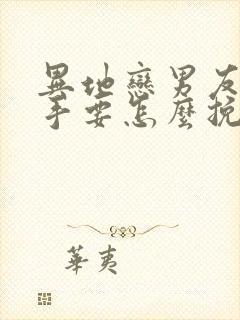 異地戀男友
手要怎麼挽
華夷